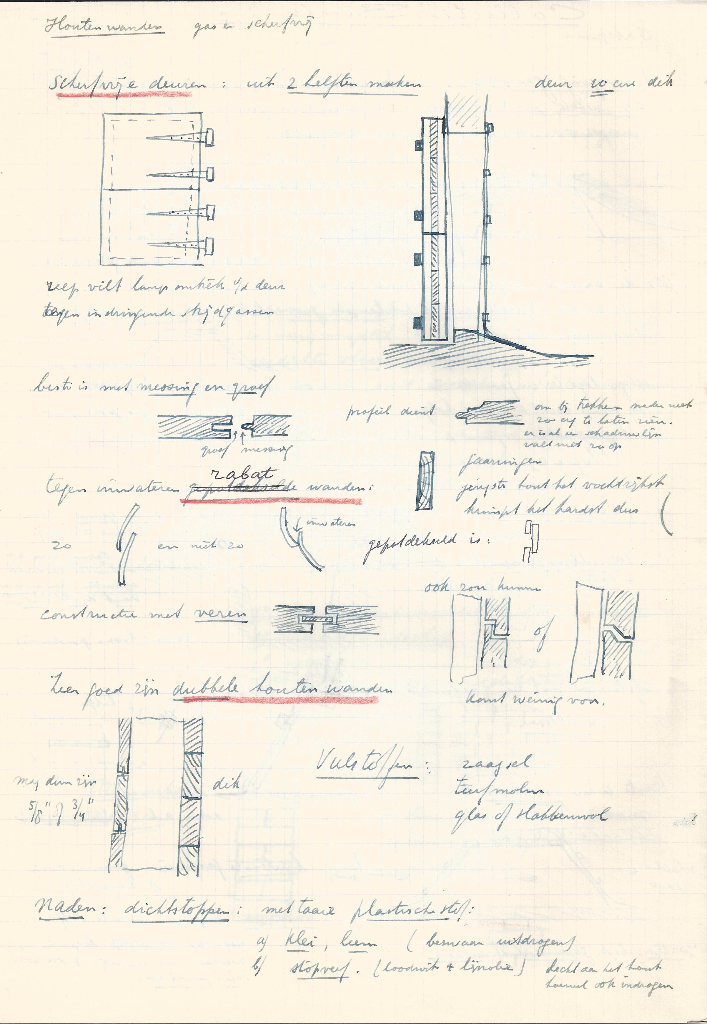 Houten wanden gas en scherfvrij
Scherfvrije deuren: uit 2 helften maken deur 10 cm dik
reep vilt langs omtrek v/d deur
tegen indringende strijdgassen
best is met messing en groef
groef messing
profiel dient
om bij trekken naden niet
zo erg te laten zien.
er is al een schaduwlijn
valt niet zo op
tegen inwateren rabat wanden:
zo en niet zo
inwateren
jaarringen
jongste hout het vochtrijkst
krimpt het hardst dus
gepotdekseld is:
ook zou kunnen
of
komt weinig voor.
constructie met veren
Zeer goed zijn dubbele houten wanden
mag dun zijn
5/8" of 3/4"
dik
Vulstoffen: zaagsel
turfmolm
glas of slakkenwol
Naden: dichtstoppen: met taaie plastische stof:
a) klei, leem (bezwaar uitdrogen)
b) stopverf. (loodwit + lijnolie) hecht aan het hout
hoewel ook indrogen